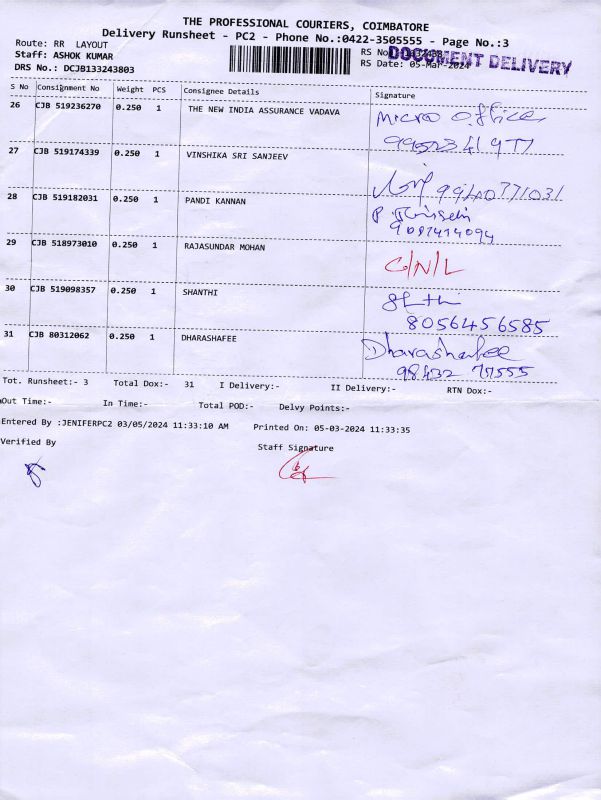 THE PROFESSIONAL COURIERS, COIMBATORE
Delivery Runsheet - PC2 - Phone No.:0422-3505555 - Page No.:3
Route: RR LAYOUT
Staff: ASHOK KUMAR
RS No
DOCUMENT DELIVERY
DRS No.: DCJB133243803
RS Date: 05-Mar-2024
S No Consignment No Weight PCS Consignee Details Signature
26 CJB 519236270 0.250 1 THE NEW INDIA ASSURANCE VADAVA
Micro Office
27 CJB 519174339 0.250 1 VINSHIKA SRI SANJEEV
9940771031
28 CJB 519182031 0.250 1 PANDI KANNAN
P
9087414094
29 CJB 518973010 0.250 1 RAJASUNDAR MOHAN
C/N/L
30 CJB 519098357 0.250 1 SHANTHI
8056456585
31 CJB 80312062 0.250 1 DHARASHAFEE
Dharashafee
98432 77555
Tot. Runsheet:- 3 Total Dox:- 31 I Delivery:- II Delivery:- RTN Dox:-
Out Time:- In Time:- Total POD:- Delvy Points:-
Entered By :JENIFERPC2 03/05/2024 11:33:10 AM Printed On: 05-03-2024 11:33:35
Verified By Staff Signature